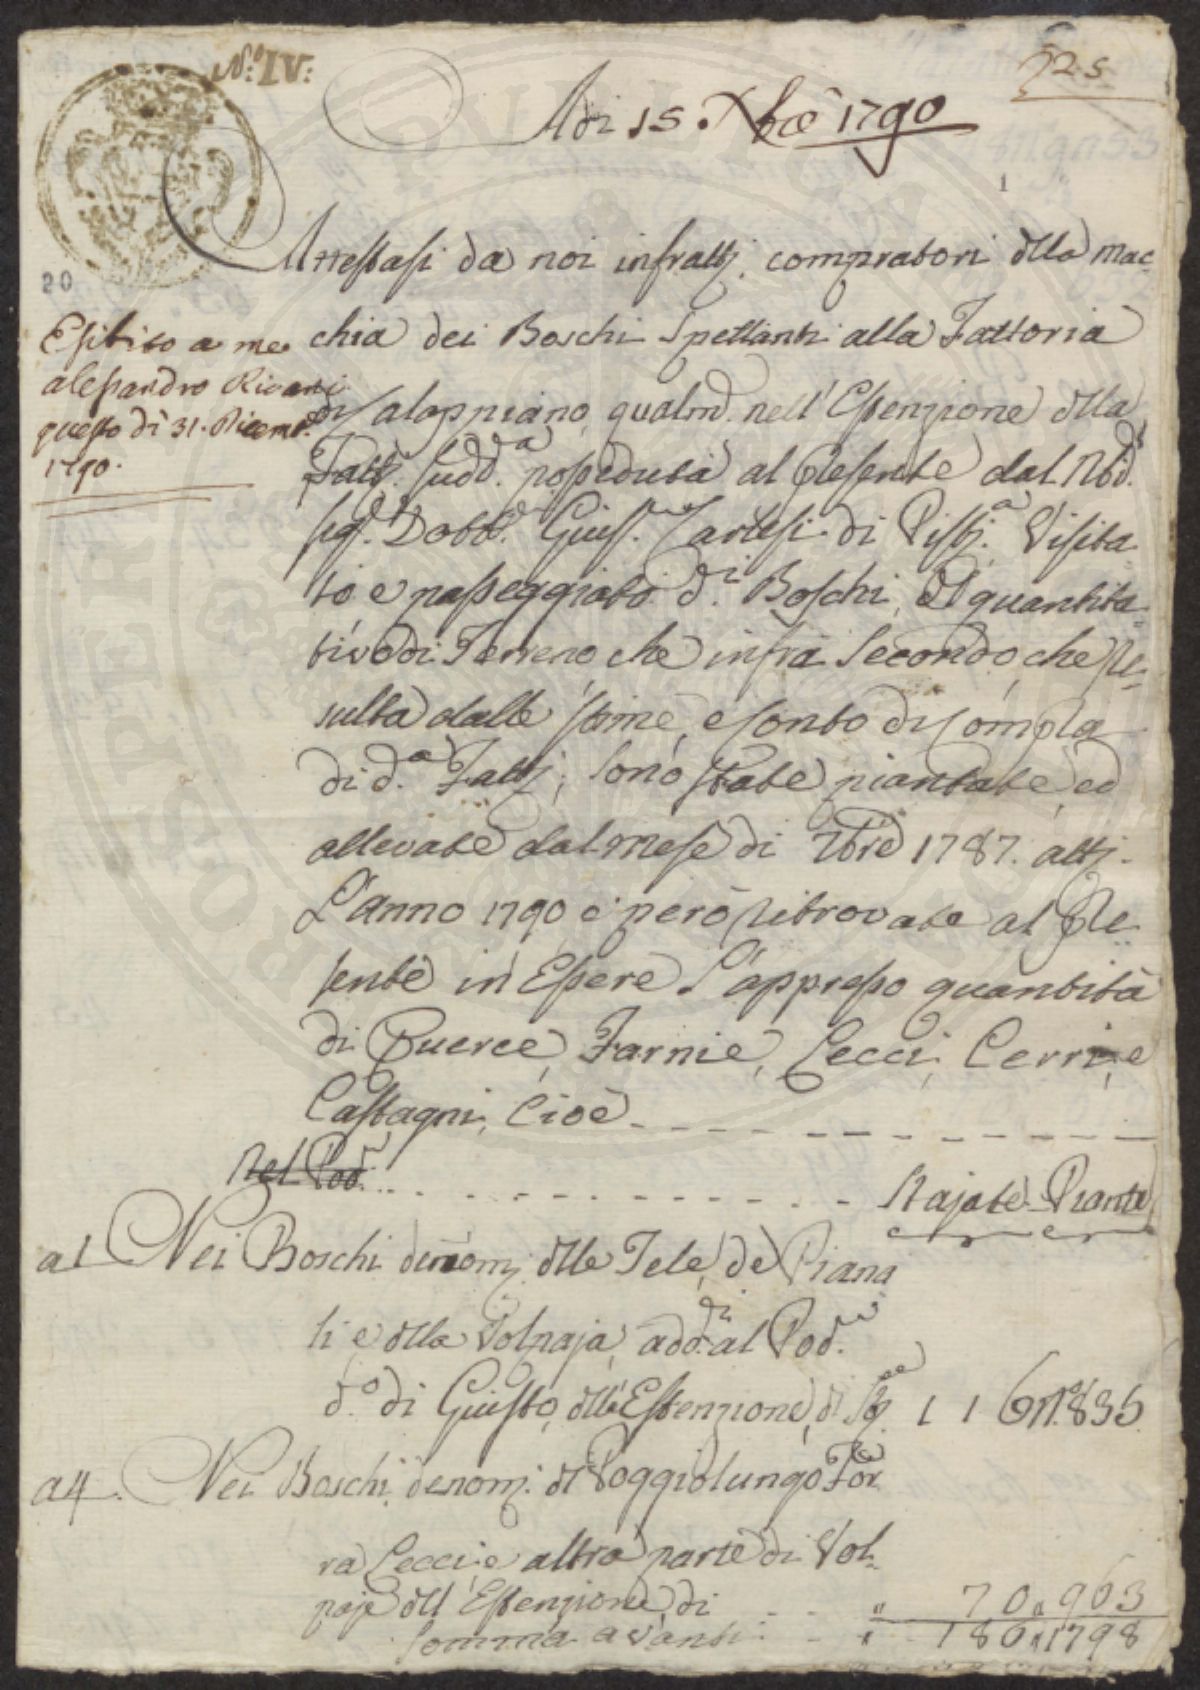 N.º IV:
525
Adi 15. Xbre 1790
1
20
Attestasi da noi infratti. compratori della mac-
chia dei Boschi Spettanti alla Fattoria
Esibito a me
alessandro Rivani
questo dì 31. Dicemb.
1790.
di Scaloppiano, qualm.e nell'Estenzione della
Fatt. sudd.a posseduta al presente dal Nob.
Sig.r Dott.r Gius. Cartesi di Pist.a Visita-
to e passeggiato d.i Boschi, quantita-
tivo di Terreno, che infra Secondo che re-
sulta dalle stime, e Conto di Compra
di d.a Fatt. sono state piantate, ed
allevate dal mese di 7bre 1787. att.
L'anno 1790 e però ritrovate al pre-
sente in Essere L'appresso quantità
di Querce, Farnie, Lecci, Cerri, e
Castagni, Cioè
Nel Pod.
Stajate Piante
a1 Nei Boschi denom. delle Tele, de Piana
li e della Volpaja, add.i al Pod.
d.o di Giusto, dell'Estenzione, di St. 116 N.835
a4. Nei Boschi denom. di Poggiolungo For
ra Lecci, e altra parte di Vol-
paje dell'Estenzione di " 70 " 963
Somma avanti " 186 " 1798